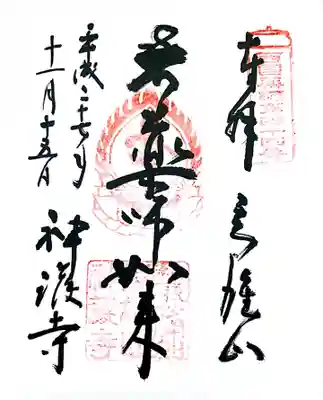 奉拝
高雄山
薬師如来
神護寺
平成二十七年
十一月十五日